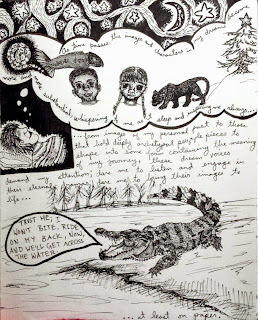 as time passes, the images and characters in my dreams become
more
and
substantial, whispering to me as I sleep and inspiring me always...
...from images of my personal past to those
that hold deeply archetypal puzzle pieces to
shape into some form containing the meaning
of my journey, these dream voices
demand my attention; dare me to listen and engage in
their stories
dare me to bring their images to
life...
TRUST ME, I
WON'T BITE. RIDE
ON MY BACK, NOW,
AND WE'LL GET ACROSS
THE WATER.
...at least on paper.